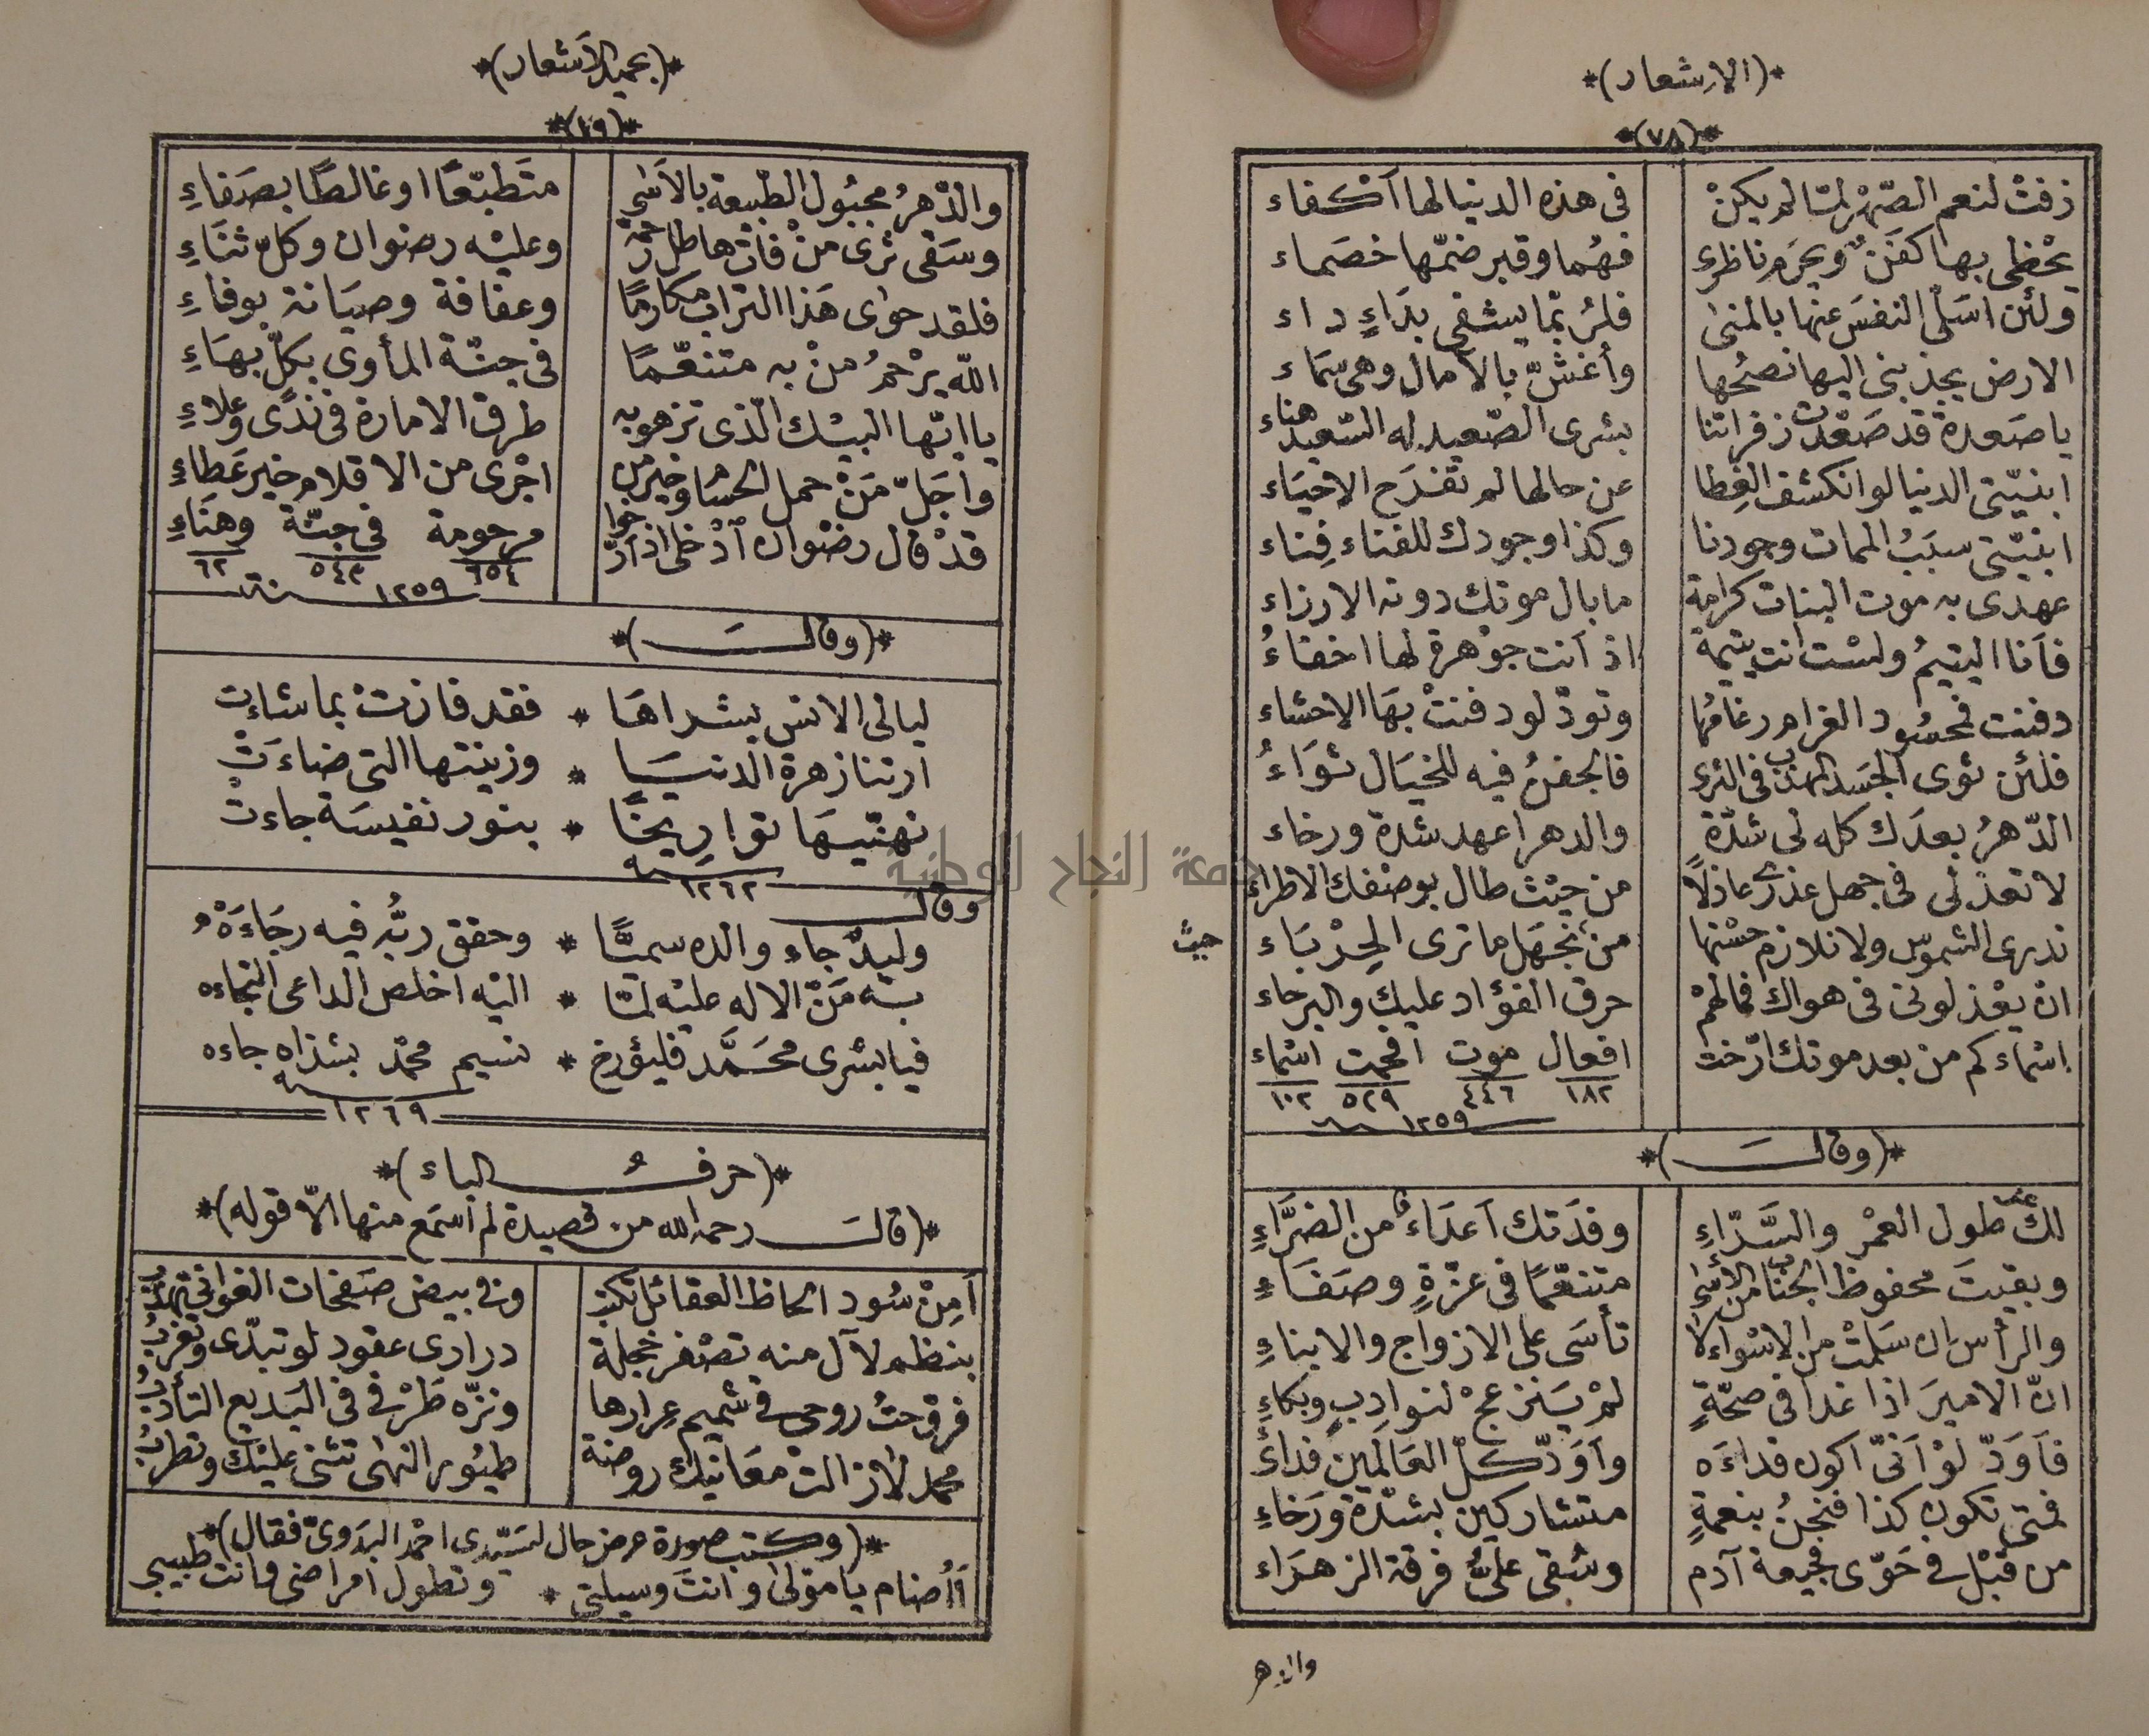 *(الاشعار)*
*(٧٨)*
زفت لنعم الصّهر لمّا لم يكنْ في هذه الدنيا لها أكفاء
يحْظى بها كفَنٌ ويحرم ناظرى فهُما وقبر ضمّها خصَماء
ولئن اسَلّى النفسَ عنها بالمنى فلرُبّما يشفى بدَاءٍ داء
الارض يجذبنى اليها نصحُها وأغشّ بالآمال وهى سَماء
يا صَعدة قد صَعّدت زفراتنا بشرى الصّعيد له السّعيد هناء
ابنيّتى الدنيا لو انكشف الغِطا عن حالها لم تفدَح الاحيَاء
ابنيّتى سبَبُ الممات وجودنا وكذا وجودك للفناء فِناء
عهدى به موت البنات كرامة ما بال موتك دونه الارزاء
فأنا اليتيمُ ولسْت انت يتيمة اذ أنت جوْهرة لها اخفاءُ
دفنت فحسُود الغرام رغامُها وتودّ لو دفنتْ بهَا الاحشاء
فلئن ثوى الجَسد المهذب فى الثرى فالجفنُ فيه للخيَال ثوَاءُ
الدّهرُ بعدَك كله لى شدّة والدهر اعهد شدة ورخاء
لا تعذلى فى جهل عذرى عاذلاً من حيْث طال بوصْفك الاطراء
ندرى الشموس ولا نلازم حسْنها من نجهَل ما ترى الحِرْبَاء
حيث
انْ يعْذلونى فى هواك فمالهمْ حرق الفؤاد عليك والبرحاء
اسْماء كم من بعد موتك ارّخت افعال موت افحمت اسْماء
١٨٢ ٤٤٦ ٥٢٩ ١٠٢
١٢٥٩
*(وقالَ)*
لك طول العمْر والسَّرّاءِ وفدَتك أعدَاء من الضرَّاءِ
وبقيتَ محفوظ الجناب من الأسَى متنعّمًا فى عزّةٍ وصَفَاءِ
والرأس ان سَلمتْ من الاسْواء لا تأسَى على الازواج والابناءِ
انّ الاميرَ اذا غدا فى صحّةٍ لمْ يَنزعجْ لنوادِبٍ وبكاءِ
فأوَدّ لوْ أنّى أكون فداءَه وأوَدّ كلّ العَالَمين فداءً
فمتى تكون كذا فنحنُ بنعمةٍ متشاركين بشدّة ورَخاءِ
من قبْل فى حَوّى فجيعة آدم وشقى علىٌّ فرقة الزهرَاء
والدهر
*(بحميد الأشعار)*
*(٧٩)*
والدّهرُ مجبُول الطّبيعة بالأسَى متَطبّعًا او غالطًا بصَفاءِ
وسَقى ثرى منْ فات هاطل رحمة وعليْه رضوان وكلّ ثنَاءِ
فلقد حوٰى هَذا التراب مكارمًا وعفافة وصيَانة بوفاءِ
اللّه يرْحمُ منْ به متنعّمًا فى جنّة المأوى بكلّ بهَاءِ
يا ايّها البيْك الّذى تزهو به طرق الامارة فى ندًى وعلاءِ
وأجَلّ مَنْ حمل الحُسَام وخير من اجْرى من الاقلام خير عَطاءِ
قدْ قال رضْوان ادْخلى اذ أرّخوا مرحومة فى جنّة وهنَاءِ
٦٥٤ ٥٤٣ ٦٢
١٢٥٩ سنة
*(وقالَ)*
ليالى الانس بشراهَا * فقد فازتْ بما شاءتْ
ارتنا زهرة الدنيَا * وزينتها التى ضاءَتْ
تهنّيهَا تواريخًا * بنور نفيسَة جاءتْ
١٢٦٢
وقال
وليدٌ جاء والده سميًّا * وحقق ربُّه فيه رجَاءَهْ
به مَنّ الاله عليْه لمّا * اليْه اخلص الداعى التجاءه
فيا بشرى محَمَّد فليؤرخ * نسيم محمّد بشذاه جاءه
١٢٦٩
*(حرفُ الباء)*
*(قالَ رحمه الله من قصيدة لم أسمَع منها الّا قوله)*
أمِنْ سُود الحاظ العقائل تكتبُ وفى بيض صَفحات الغوانى تهذّبُ
بنظم لآل منه تصْفر خجلة درارى عقود لو تبدّى وتغربُ
فروحتُ روحى فى شميم عرارها ونزّه طرْفى فى البَديع التأدّبُ
محمد لا زالتْ معَانيك روضة طيُور النهى تثنى عليْك وتطربُ
*(وكتب صورة عرض حال لسَيّدى احْمد البدَوىّ فقال)*
أأُضام يا موْلى وانتَ وسيلتى * وتطول امراضى وانت طبيبى